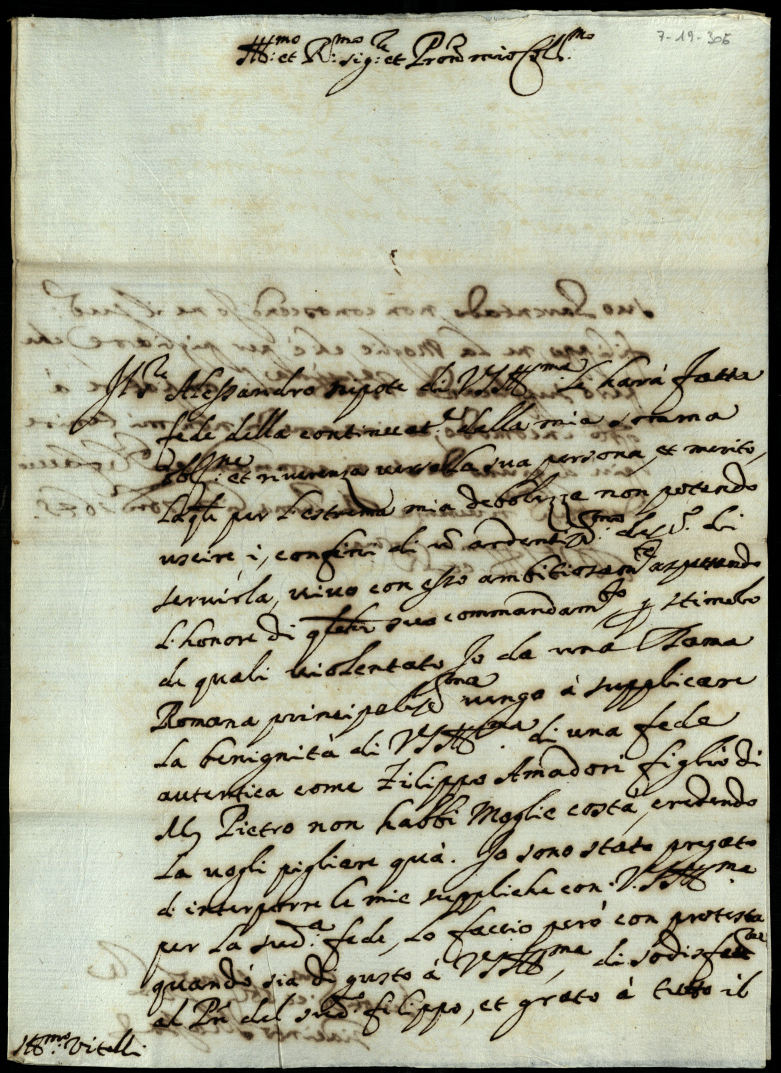 7-19-305
Ill.mo et R.mo sig.re et Pron mio Coll.mo
Il s.re Alessandro nipote di VS Ill.ma li havrà fatta
fede della continuat.e della mia somma
et riverenza verso la sua persona, et merito,
la qle per l'estrema mia debolezze non potendo
uscire i, confini di un ardent di
servirla, vivo con esso ambitiosam.te aspettendo
l'honore di qlche suo commandam.to stimolo
de quali violentato Io da una Dama
Romana principaliss.ma vengo à supplicare
la benignità di VS Ill.ma di una fede
autentica come Filippo Amadori figlio di
M Pietro non habbi Moglie costà, credendo
la vogli pigliare quà. Io sono stato pregato
d'interporre le mie suppliche con V.S Ill.ma
per la sud.a fede, lo faccio però con protesta
quando sia di gusto à VS Ill.ma, di sodisfat
al Pre del sud.o filippo, et grato à tutto il
Ill.mo Vitelli